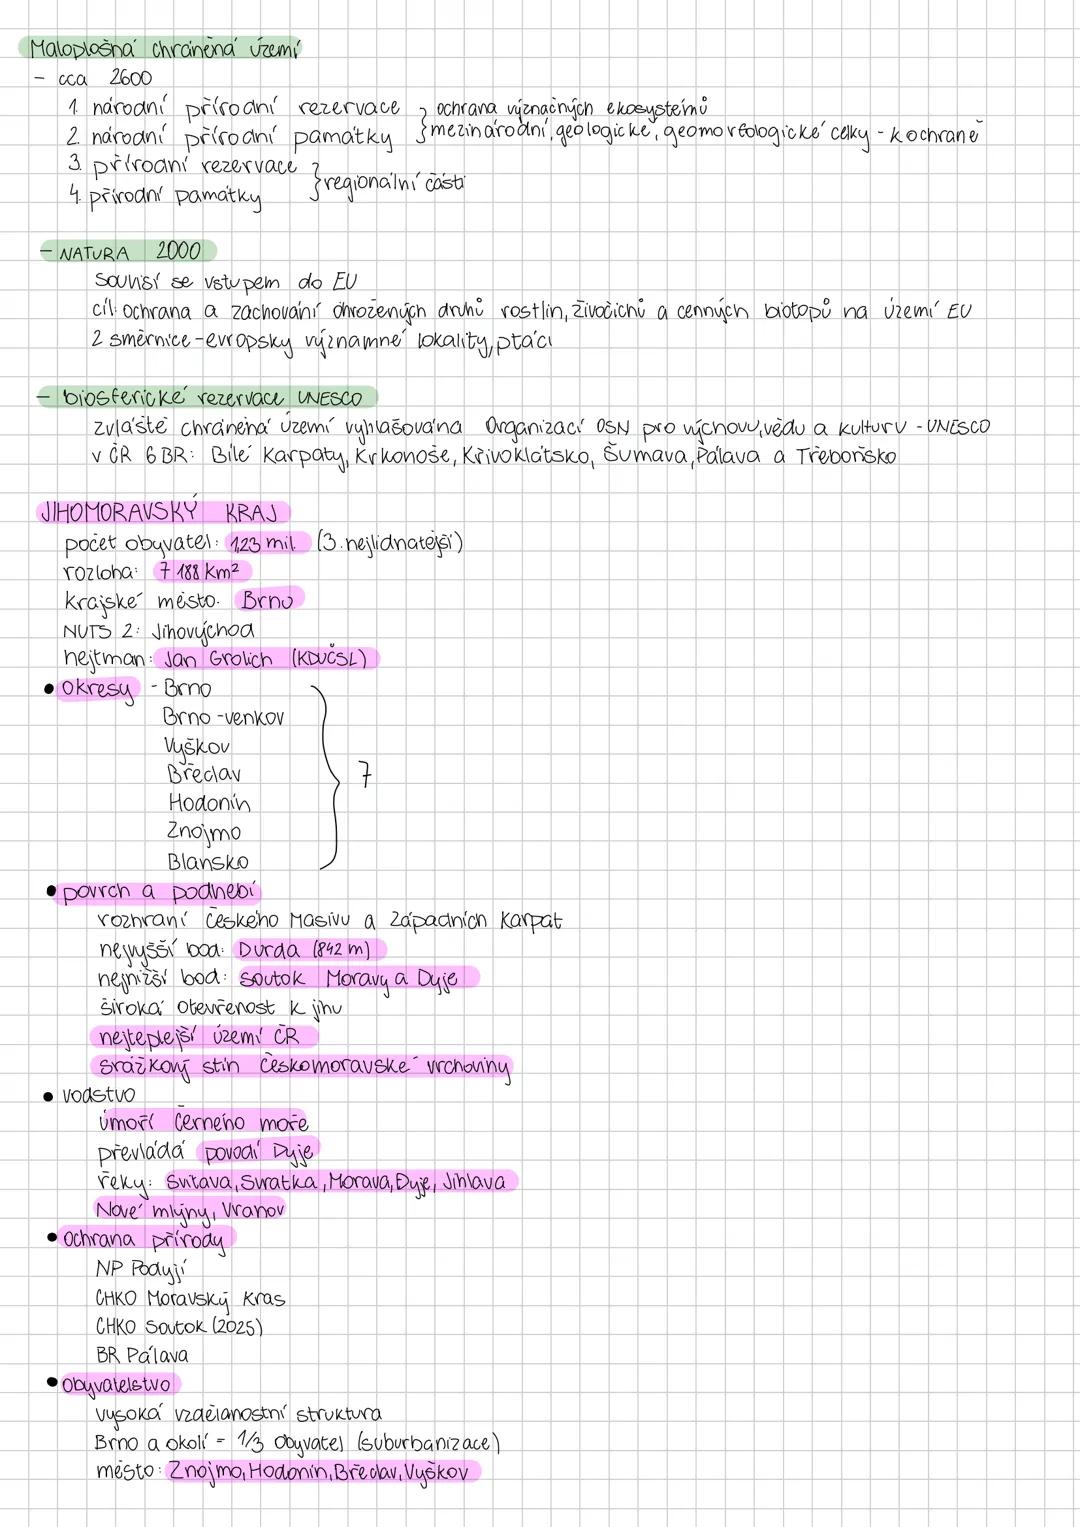 Maloplošná chráněná území
- cca 2600
1. národní přírodní rezervace } ochrana význačných ekosystémů
2. národní přírodní památky } mezinárodní, geologické, geomorfologické celky - k ochraně
3. přírodní rezervace } regionální části
4. přírodní památky
- NATURA 2000
souvisí se vstupem do EU
cíl: ochrana a zachování ohrožených druhů rostlin, živočichů a cenných biotopů na území EU
2 směrnice - evropsky významné lokality, ptáci
- biosferické rezervace UNESCO
zvláště chráněná území vyhlašována Organizací OSN pro výchovu, vědu a kulturu - UNESCO
v ČR 6 BR: Bílé Karpaty, Krkonoše, Křivoklátsko, Šumava, Pálava a Třeboňsko
JIHOMORAVSKÝ KRAJ
počet obyvatel: 1,23 mil (3. nejlidnatější)
rozloha: 7 188 km²
krajské město: Brno
NUTS 2: Jihovýchod
hejtman: Jan Grolich (KDUČSL)
• okresy - Brno
Brno-venkov
Vyškov
Břeclav
} 7
Hodonín
Znojmo
Blansko
• povrch a podnebí
rozhraní Českého Masivu a Západních Karpat
nejvyšší bod: Durda (842 m)
nejnižší bod: soutok Moravy a Dyje
široká otevřenost k jihu
nejteplejší území ČR
srážkový stín Českomoravské vrchoviny
• vodstvo
úmoří Černého moře
převládá povodí Dyje
řeky: Svitava, Svratka, Morava, Dyje, Jihlava
Nové mlýny, Vranov
• ochrana přírody
NP Podyjí
CHKO Moravský kras
CHKO Soutok (2025)
BR Pálava
• obyvatelstvo
vysoká vzdělanostní struktura
Brno a okolí = 1/3 obyvatel (suburbanizace)
město: Znojmo, Hodonín, Břeclav, Vyškov